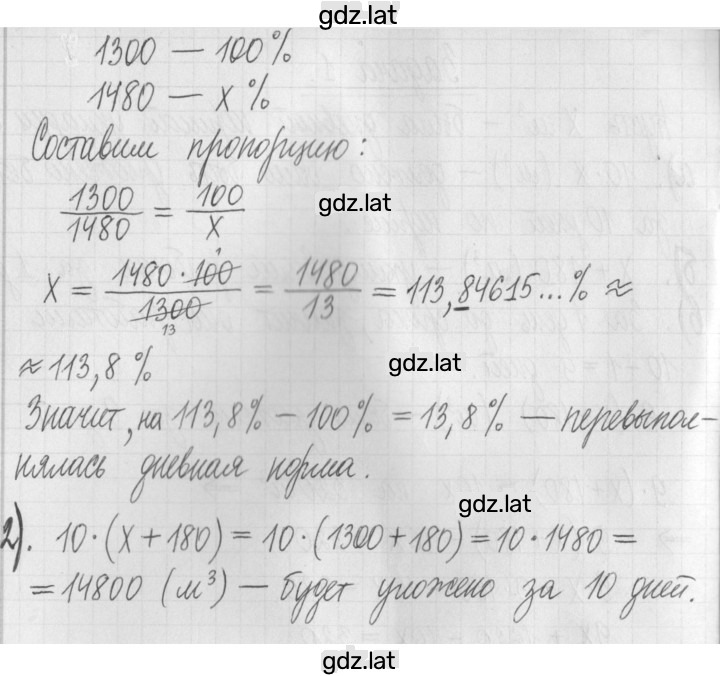 gdz.lat
1300 — 100%
1480 — x %
Составим пропорцию:
1300/1480 = 100/x
gdz.lat
x = 1480 · 100/1300 = 1480/13 = 113,84615...% ≈
1
13
≈ 113,8 %
gdz.lat
Значит, на 113,8% – 100% = 13,8% — перевыпол-
нялась дневная норма.
gdz.lat
2). 10·(x + 180) = 10·(1300 + 180) = 10·1480 =
= 14800 (м³) — будет уложено за 10 дней.
gdz.lat